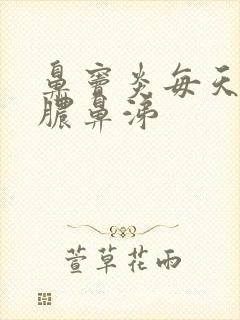 鼻窦炎每天
脓鼻涕
萱草花雨